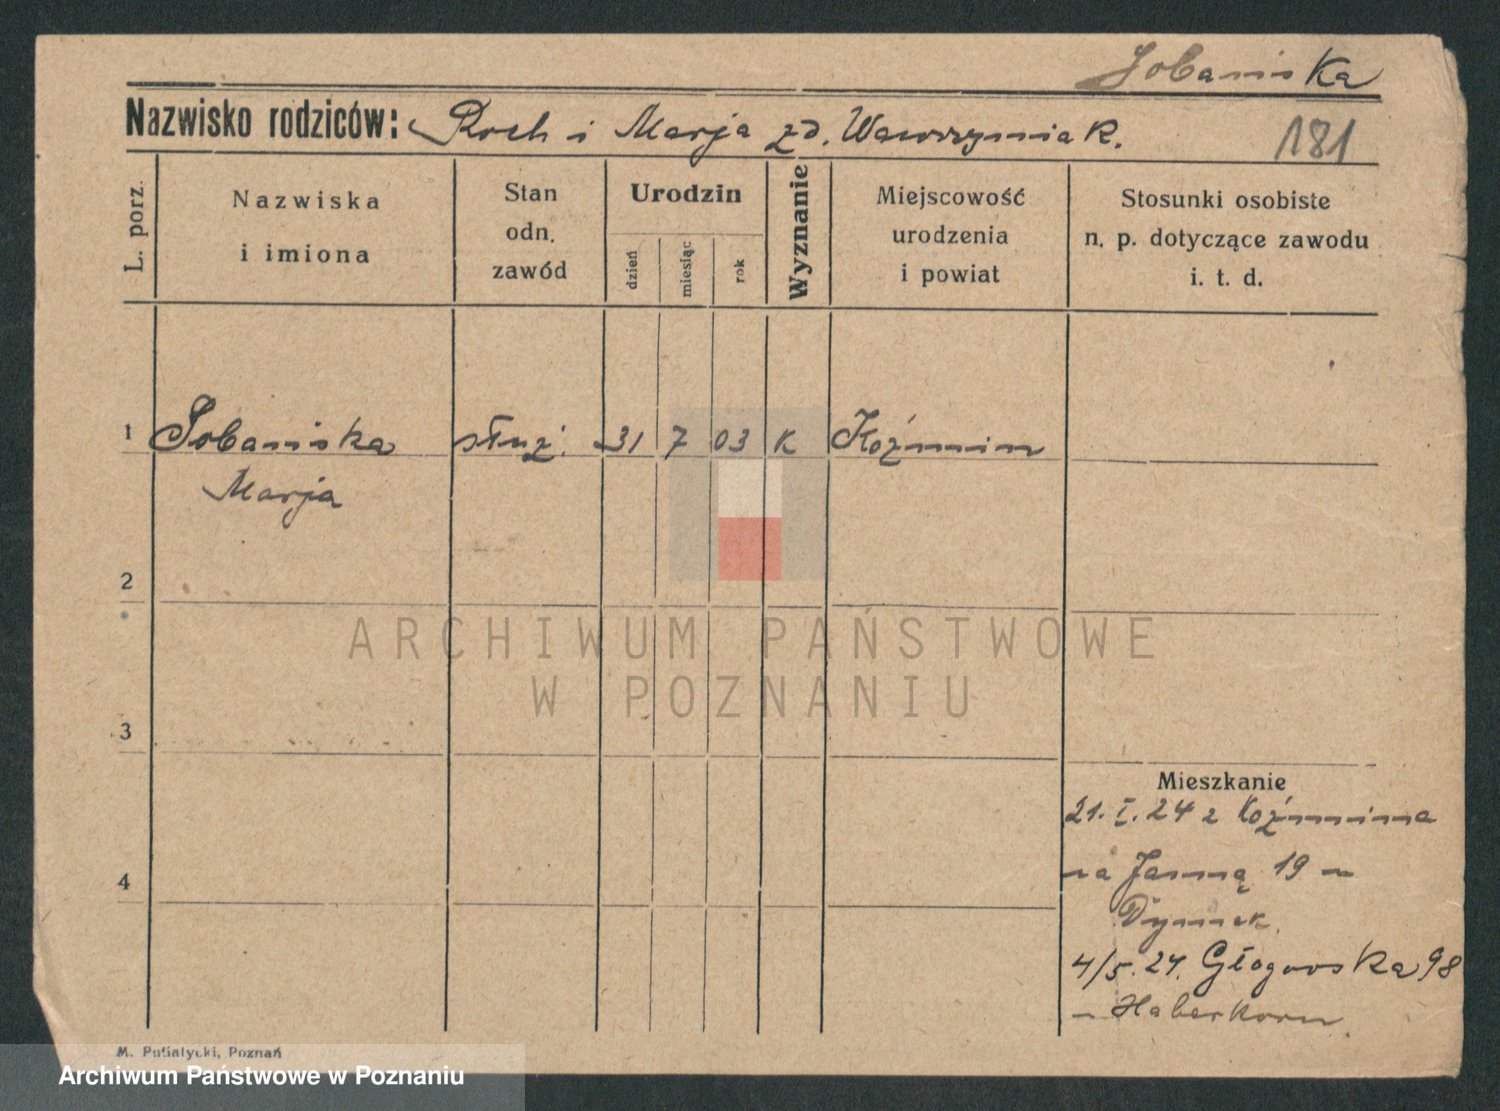 Sobaniska
Nazwisko rodziców: Roch i Marja zd. Wawrzyniak.
181
L. porz.
Nazwiska
i imiona
Stan
odn.
zawód
Urodzin
dzień
miesiąc
rok
Wyznanie
Miejscowość
urodzenia
i powiat
Stosunki osobiste
n. p. dotyczące zawodu
i. t. d.
1 Sobaniska służ. 31 7 03 K Koźmin
Marja
2
3
4
Mieszkanie
21.I.24 z Koźmina
na Jasną 19 u
Dymek.
4/5.24. Głogowska 98
u Haberkorn
ARCHIWUM PAŃSTWOWE
W POZNANIU
M. Putiatycki, Poznań
Archiwum Państwowe w Poznaniu